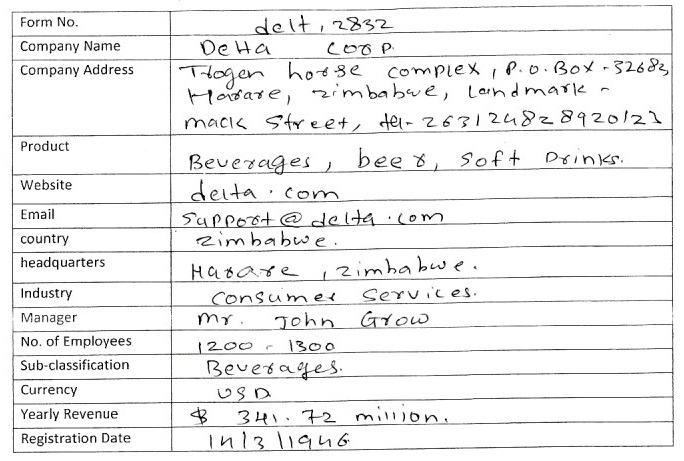 Form No. delt, 2832
Company Name Delta Coop.
Company Address Trogen horse complex, P.O.Box - 32683,
Harare, zimbabwe, Landmark -
mack Street, tel- 263124828920123
Product Beverages, beer, Soft Drinks.
Website delta.com
Email Support@delta.com
country Zimbabwe.
headquarters Harare, zimbabwe.
Industry Consumer Services.
Manager Mr. John Grow
No. of Employees 1200 - 1300
Sub-classification Beverages.
Currency USD
Yearly Revenue $ 341.72 million.
Registration Date 14/3/1946